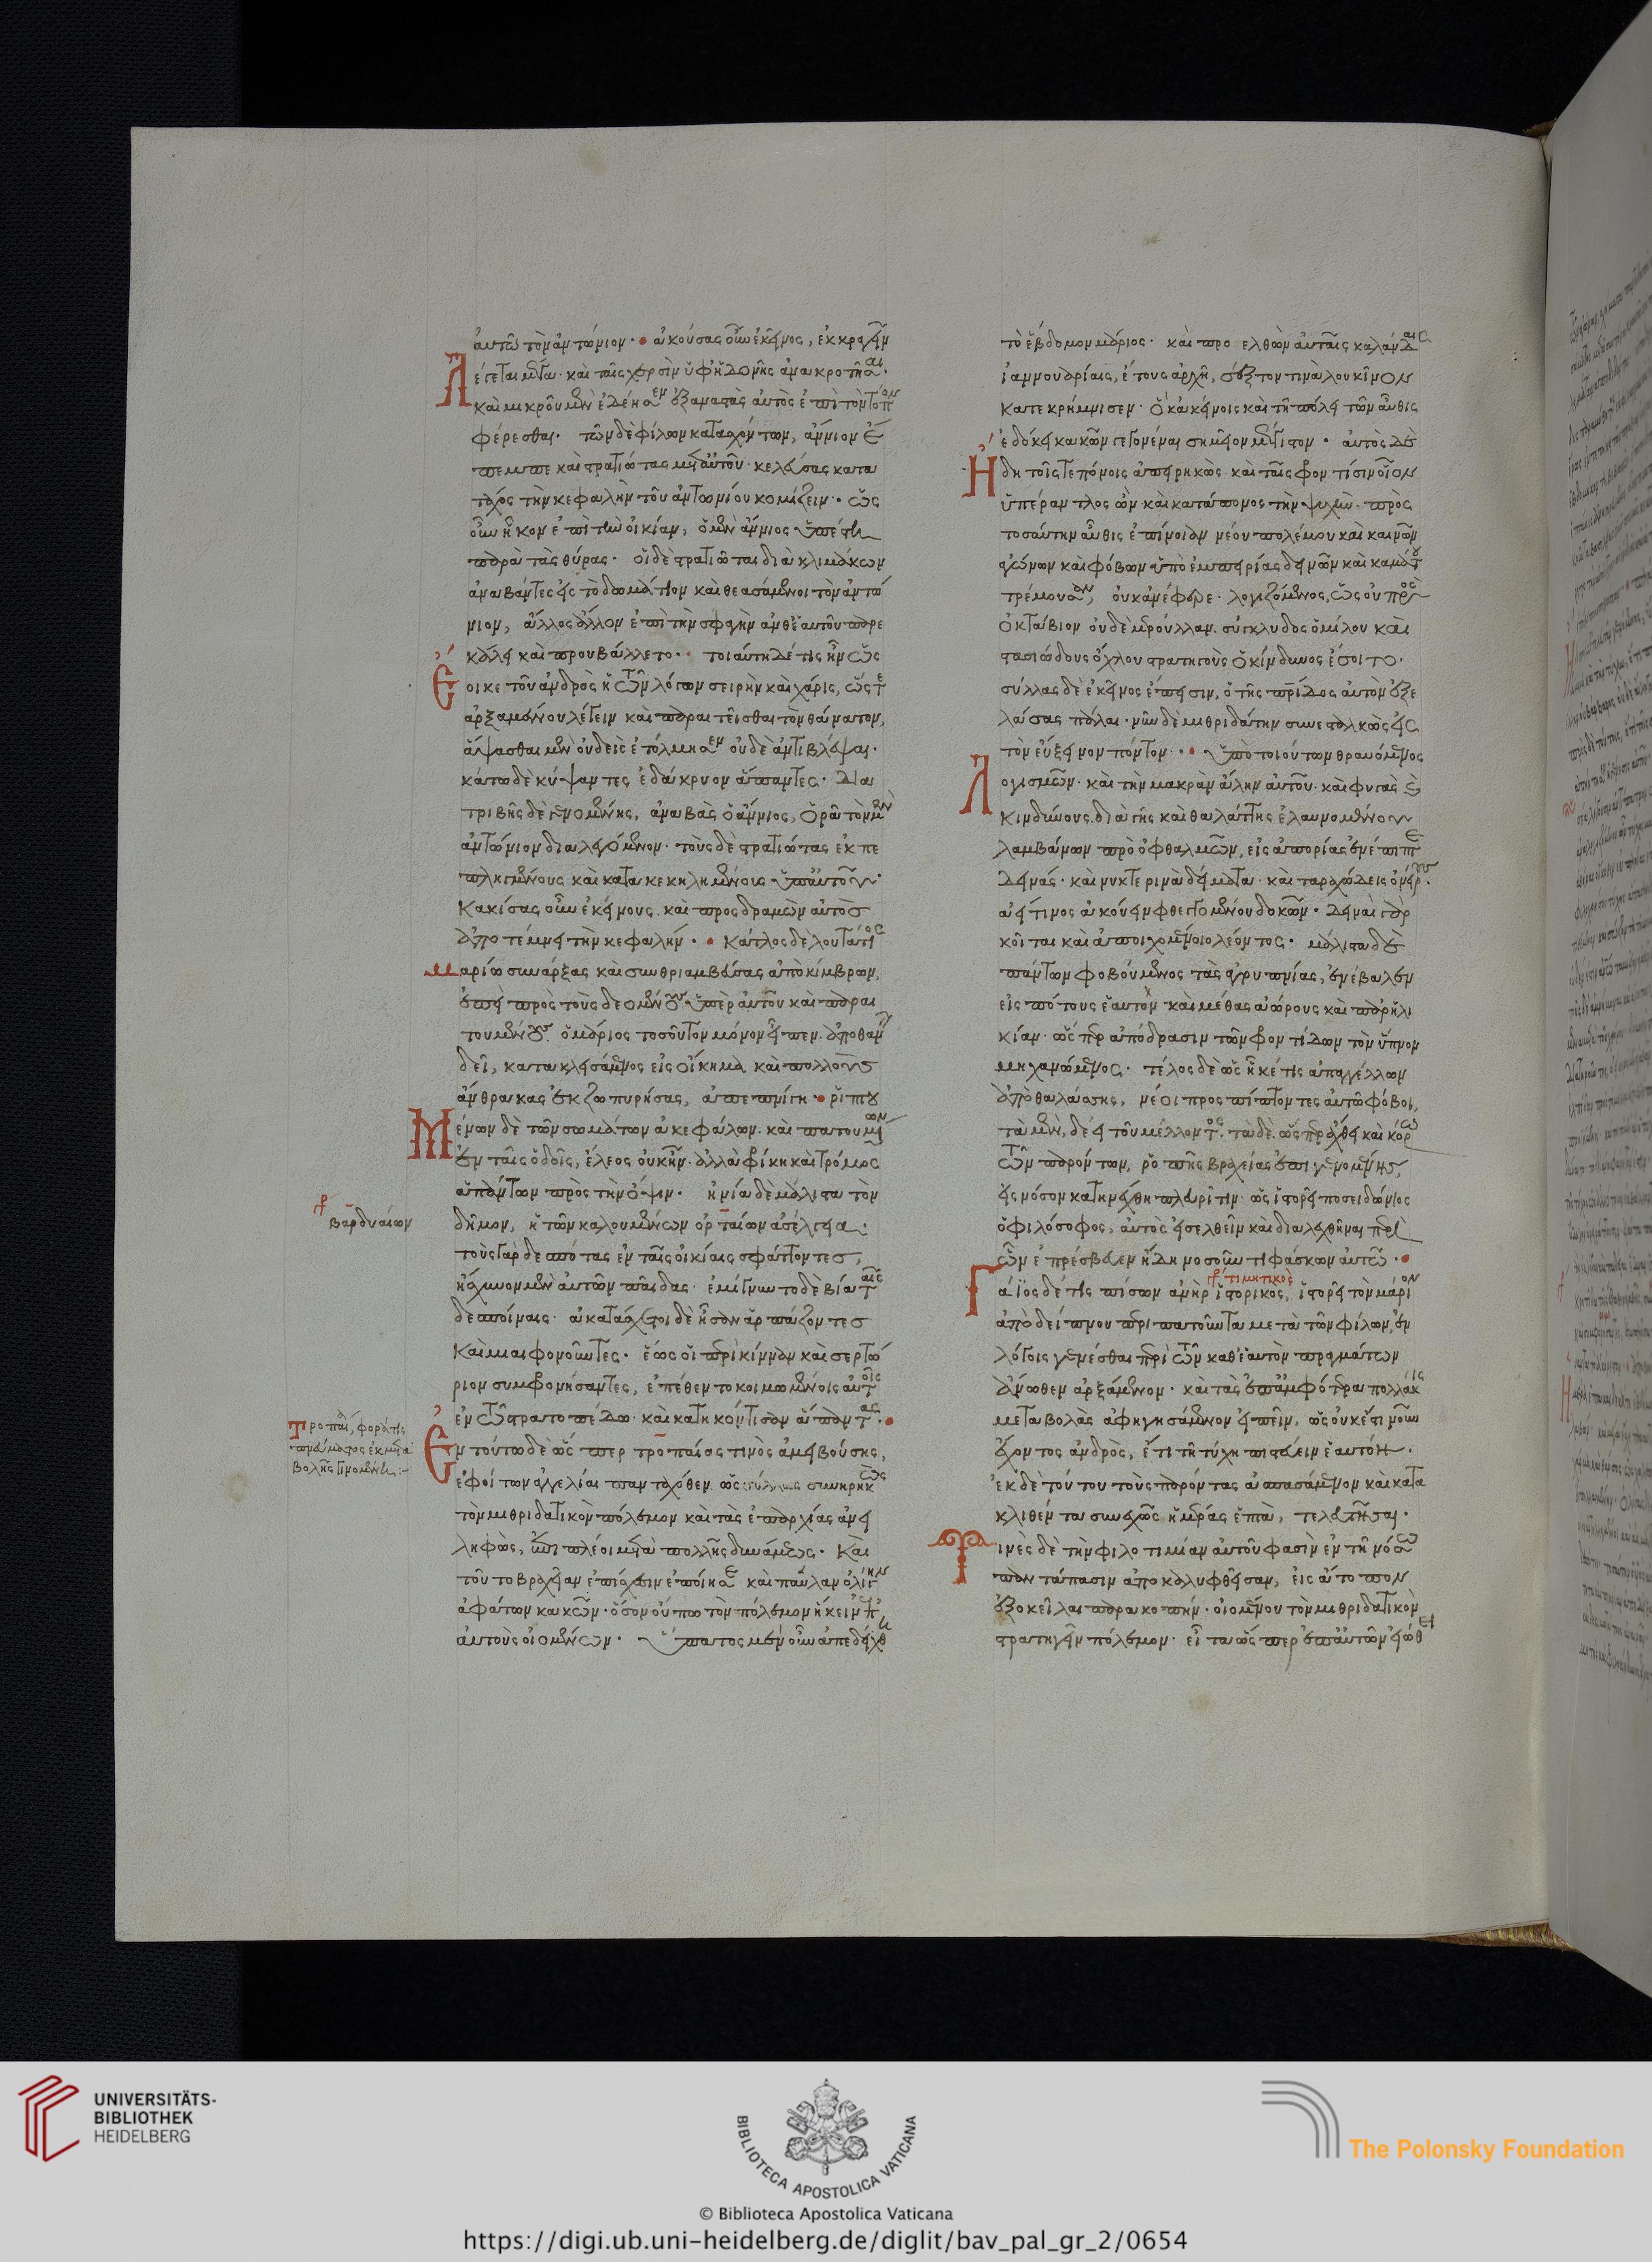 αὐτῶ τὸν ἀντώνιον· ἀκούσας οὖν ἐκεῖνος, ἐκκραγεῖν
λέγεται μέγα· καὶ ταῖς χερσὶν ὑφ' ἡδονῆς ἀνακροτῆσαι·
καὶ μικροῦ μὲν ἐδέησεν ἐξαναστὰς αὐτὸς ἐπὶ τὸν τόπον
φέρεσθαι· τῶν δὲ φίλων κατασχόντων, ἄννιον ἔ
πεμπε καὶ στρατιώτας μετ' αὐτοῦ· κελεύσας κατα
τάχος τὴν κεφαλὴν τοῦ ἀντωνίου κομίζειν· ὡς
οὖν ἧκον ἐπὶ τὴν οἰκίαν, ὁ μὲν ἄννιος ὑπέστη
παρὰ τὰς θύρας· οἱ δὲ στρατιῶται διὰ κλιμάκων
ἀναβάντες εἰς τὸ δωμάτιον καὶ θεασάμενοι τὸν ἀντώ
νιον, ἄλλος ἄλλον ἐπὶ τὴν σφαγὴν ἀνθ' ἑαυτοῦ παρε
κάλει καὶ προυβάλλετο· τοιαύτη δέ τις ἦν ὡς
ἔοικε τοῦ ἀνδρὸς ἡ τῶν λόγων σειρὴν καὶ χάρις, ὥστε
ἀρξαμένου λέγειν καὶ παραιτεῖσθαι τὸν θάνατον,
ἅψασθαι μὲν οὐδεὶς ἐτόλμησεν οὐδὲ ἀντιβλέψαι·
κάτω δὲ κύψαντες ἐδάκρυον ἅπαντες· δια
τριβῆς δὲ γενομένης, ἀναβὰς ὁ ἄννιος, ὁρᾶ τὸν μὲν
ἀντώνιον διαλεγόμενον· τοὺς δὲ στρατιώτας ἐκπε
πληγμένους καὶ κατακεκηλημένους ὑπ' αὐτοῦ·
κακίσας οὖν ἐκείνους καὶ προσδραμὼν αὐτὸς
ἀποτέμνει τὴν κεφαλήν· κάτλος δὲ λουτάτιος
μαρίω συνάρξας καὶ συνθριαμβεύσας ἀπὸ κίμβρων,
ἐπεὶ πρὸς τοὺς δεομένους ὑπὲρ αὐτοῦ καὶ παραι
τουμένους ὁ μάριος τοσοῦτον μόνον εἶπεν ἀποθανεῖν
δεῖ, κατακλεισάμενος εἰς οἴκημα καὶ πολλοὺς
ἄνθρακας ἐκζωπυρήσας, ἀπεπνίγη· ῥιπτου
μένων δὲ τῶν σωμάτων ἀκεφάλων· καὶ πατουμένων
ἐν ταῖς ὁδοῖς, ἔλεος οὐκ ἦν· ἀλλὰ φρίκη καὶ τρόμος
ἁπάντων πρὸς τὴν ὄψιν· ἠνία δὲ μάλιστα τὸν
δῆμον, ἡ τῶν καλουμένων ὀρταίων ἀσέλγεια·
τοὺς γὰρ δεσπότας ἐν ταῖς οἰκίαις σφάττοντες,
ἤσχυνον μὲν αὐτῶν παῖδας· ἐμίγνυντο δὲ βία ταῖς
δεσποίναις· ἀκατάσχετοι δὲ ἦσαν ἁρπάζοντες
καὶ μιαιφονοῦντες· ἕως οἱ περὶ κίνναν καὶ σερτώ
ριον συμφρονήσαντες, ἐπέθεντο κοιμωμένοις αὐτοῖς
ἐν τῶ στρατοπέδω· καὶ κατηκόντισαν ἅπαντας·
ἐν τούτω δὲ ὥσπερ τροπαίας τινὸς ἀμειβούσης,
ἐφοίτων ἀγγελίαι πανταχόθεν ὡς σύλλας συνηρηκὼς
τὸν μιθριδατικὸν πόλεμον καὶ τὰς ἐπαρχίας ἀνει
ληφὼς, ἐπιπλέοι μετὰ πολλῆς δυνάμεως· καὶ
τοῦτο βραχεῖαν ἐπίσχεσιν ἐποίησε καὶ παῦλαν ὀλίγην
ἀφάτων κακῶν· ὅσον οὔπω τὸν πόλεμον ἥκειν ἐπ'
αὐτοὺς οἰομένων· ὕπατος μὲν οὖν ἀπεδείχθη
βαρδυαίων
τροπαία, φορά τις
πνεύματος ἐκ μετα
βολῆς γινομένη:~
τὸ ἕβδομον μάριος· καὶ προελθὼν αὐταῖς καλάνδαις
ἰαννουαρίαις, ἔτους ἀρχῆ, σέξτον τινὰ λουκῖνον
κατεκρήμνισεν· ὃ κἀκείνοις καὶ τῆ πόλει τῶν αὖθις
ἐδόκει κακῶν γεγονέναι σημεῖον μέγιστον· αὐτὸς δὲ
ἤδη τοῖς τε πόνοις ἀπειρηκὼς καὶ ταῖς φροντίσιν οἷον
ὑπέραντλος ὢν καὶ κατάπονος τὴν ψυχὴν πρὸς
τοσαύτην αὖθις ἐπίνοιαν νέου πολέμου καὶ καινῶν
ἀγώνων καὶ φόβων ὑπὸ ἐμπειρίας δεινῶν καὶ καμάτου
τρέμουσαν, οὐκ ἀνέφερε· λογιζόμενος, ὡς οὐ πρὸς
ὀκτάβιον οὐδὲ μερούλλαν σύγκλυδος ὁμίλου καὶ
στασιώδους ὄχλου στρατηγοὺς ὁ κίνδυνος ἔσοιτο·
σύλλας δὲ ἐκεῖνος ἔπεισιν, ὁ τῆς πατρίδος αὐτὸν ἐξε
λάσας πάλαι· νῦν δὲ μιθριδάτην συνεσταλκὼς εἰς
τὸν εὔξεινον πόντον· ὑπὸ τοιούτων θραυόμενος
λογισμῶν· καὶ τὴν μακρὰν ἄλην αὐτοῦ καὶ φυγὰς καὶ
κινδύνους διὰ γῆς καὶ θαλάττης ἐλαυνομένου
λαμβάνων πρὸ ὀφθαλμῶν, εἰς ἀπορίας ἐνέπιπτε
δεινάς· καὶ νυκτερινὰ δείματα· καὶ ταραχώδεις ὀνείρους·
ἀεί τινος ἀκούειν φθεγγομένου δοκῶν· δειναὶ γὰρ
κοῖται καὶ ἀποιχομένοιο λέοντος· μάλιστα δὲ
πάντων φοβούμενος τὰς ἀγρυπνίας, ἐνέβαλεν
εἰς πότους ἑαυτὸν καὶ μέθας ἀώρους καὶ παρ' ἡλι
κίαν· ὥσπερ ἀπόδρασιν τῶν φροντίδων τὸν ὕπνον
μηχανώμενος· τέλος δὲ ὡς ἧκέ τις ἀπαγγέλλων
ἀπὸ θαλάσσης, νέοι προσπίπτοντες αὐτῶ φόβοι,
τὰ μὲν, δέει τοῦ μέλλοντος· τὰ δὲ ὥσπερ ἄχθει καὶ κόρω
τῶν παρόντων, ῥοπῆς βραχείας ἐπιγενομένης,
εἰς νόσον κατηνέχθη πλευρῖτιν· ὡς ἱστορεῖ ποσειδώνιος
ὁ φιλόσοφος, αὐτὸς εἰσελθεῖν καὶ διαλεχθῆναι περὶ
ὧν ἐπρέσβευεν ἤδη νοσοῦντι φάσκων αὐτῶ·
τιμητικὸς
γάϊος δέ τις πίσων ἀνὴρ ἱστορικὸς, ἱστορεῖ τὸν μάριον
ἀπὸ δείπνου περιπατοῦντα μετὰ τῶν φίλων, ἐν
λόγοις γενέσθαι περὶ τῶν καθ' ἑαυτὸν πραγμάτων
ἄνωθεν ἀρξάμενον· καὶ τὰς ἐπ' ἀμφότερα πολλάκις
μεταβολὰς ἀφηγησάμενον εἰπεῖν, ὡς οὐκ ἔστι νοῦν
ἔχοντος ἀνδρὸς, ἔτι τῆ τύχη πιστεύειν ἑαυτόν·
ἐκ δὲ τούτου τοὺς παρόντας ἀσπασάμενον καὶ κατα
κλιθέντα συνεχῶς ἡμέρας ἑπτὰ, τελευτῆσαι·
τινὲς δὲ τὴν φιλοτιμίαν αὐτοῦ φασὶν ἐν τῆ νόσω
παντάπασιν ἀποκαλυφθεῖσαν, εἰς ἄτοπον
ἐξοκεῖλαι παρακοπήν· οἰομένου τὸν μιθριδατικὸν
στρατηγεῖν πόλεμον· εἶτα ὥσπερ ἐπ' αὐτῶν εἰώθει
UNIVERSITÄTS-
BIBLIOTHEK
HEIDELBERG
BIBLIOTECA APOSTOLICA VATICANA
The Polonsky Foundation
© Biblioteca Apostolica Vaticana
https://digi.ub.uni-heidelberg.de/diglit/bav_pal_gr_2/0654